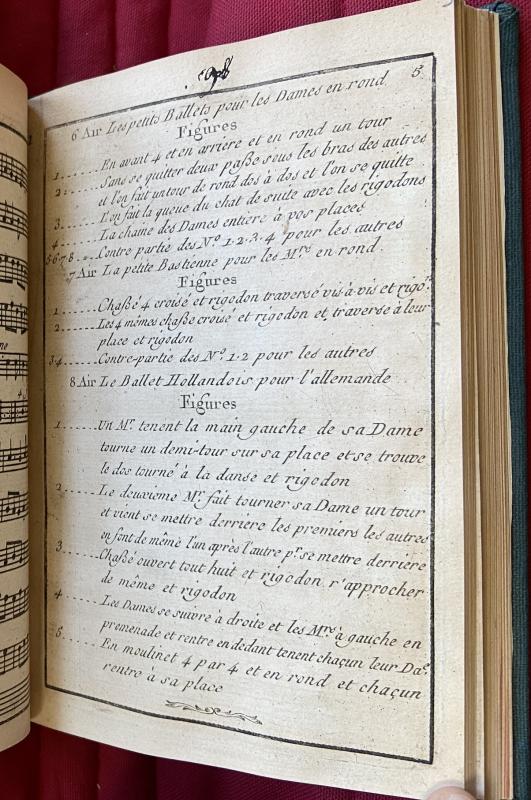 5.
6 Air Les petits Ballets pour les Dames en rond
Figures
1......En avant 4 et en arriere et en rond un tour
2......Sans se quitter deux paße sous les bras des autres
et l'on fait un tour de rond dos à dos et l'on se quitte
3......l'on fait la queue du chat de suite avec les rigodons
4......La chaine des Dames entiere à vos places
5.6.7.8...Contre partie des Nº 1.2.3.4 pour les autres
7 Air La petite Bastienne pour les Mrs en rond.
Figures
1......Chaßé 4 croisé et rigodon traversé vis à vis et rigo.n
2......Les 4 mêmes chaße croisé et rigodon et traverse à leur
place et rigodon
3.4.....Contre-partie des Nº 1.2 pour les autres
8 Air Le Ballet Hollandois pour l'allemande
Figures
1......Un Mr. tenent la main gauche de sa Dame
tourne un demi-tour sur sa place et se trouve
le dos tourné à la danse et rigodon
2......Le deuxieme Mr. fait tourner sa Dame un tour
et vient se mettre derriere les premiers les autres
en font de même l'un après l'autre pr. se mettre derriere
3......Chaßé ouvert tout huit et rigodon r'approcher
de même et rigodon
4......Les Dames se suivre à droite et les Mrs à gauche en
promenade et rentre en dedant tenent chaçun leur Dae.
5......En moulinet 4 par 4 et en rond et chaçun
rentre à sa place